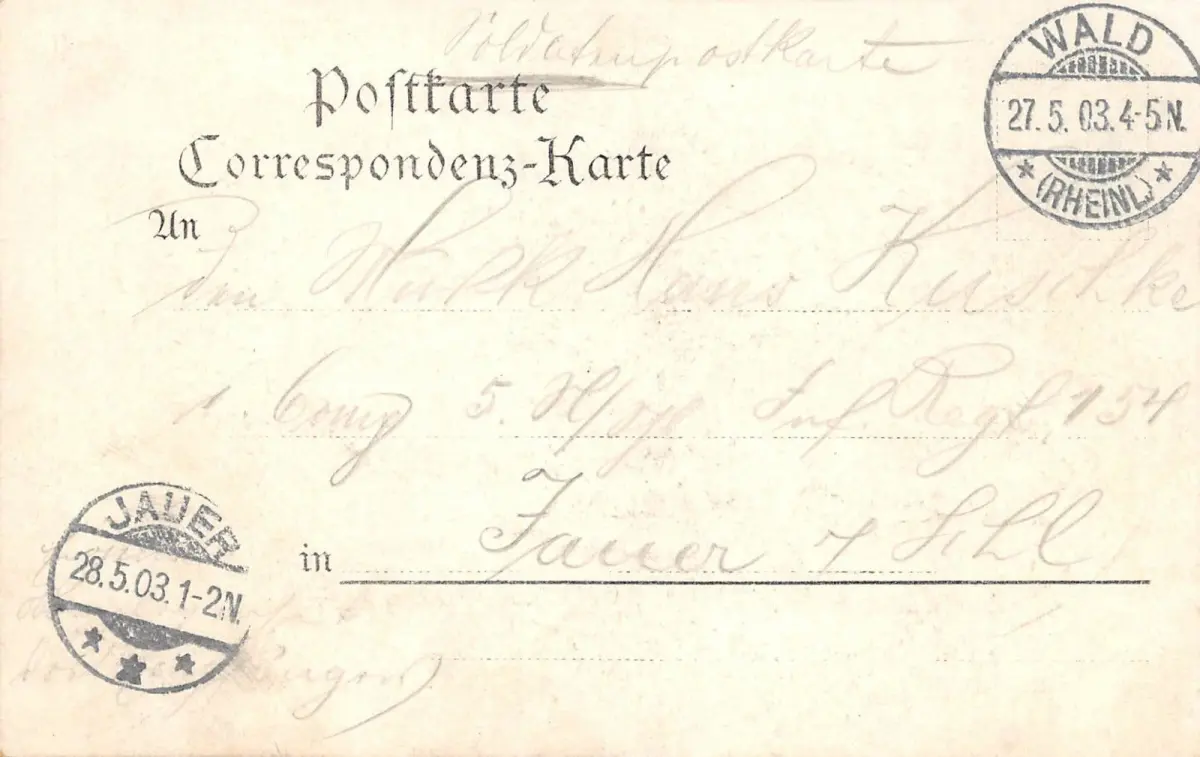 Soldatenpostkarte
Postkarte
Correspondenz-Karte
WALD
27.5.03.4-5N.
(RHEINL.)
An
den Musk Hans Kuschke
1. Comp 5. Inf. Regt. 154
JAUER
28.5.03.1-2N.
in Jauer / Schl